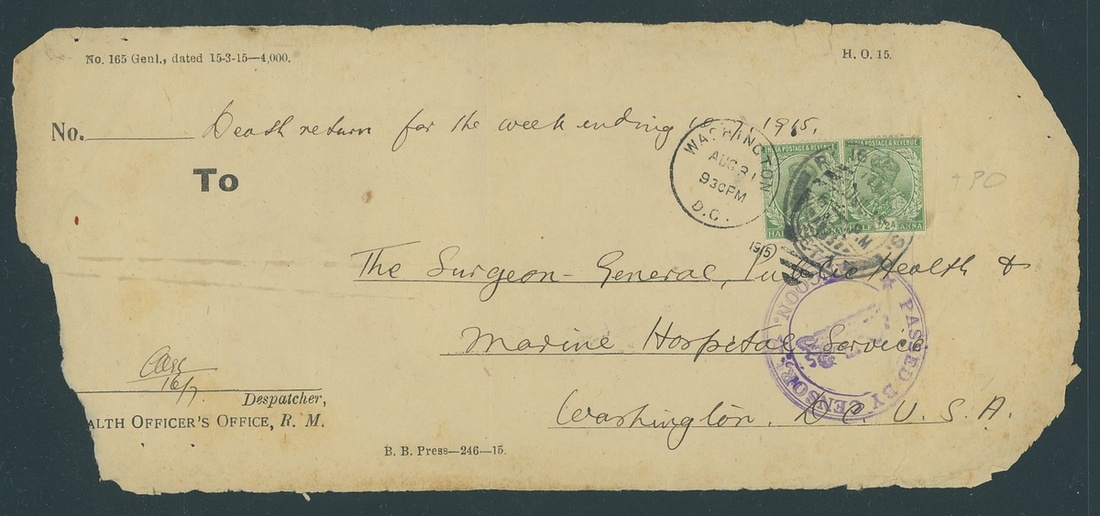 No. 165 Genl., dated 15-3-15—4,000.
H. O. 15.
No. Death return for the week ending 1915.
To
WASHINGTON
AUG 21
930PM
D.C.
1915
INDIA POSTAGE & REVENUE
INDIA POSTAGE & REVENUE
HALF ANNA
The Surgeon-General, Public Health &
Marine Hospital Service
Washington. D.C. U.S.A.
PASSED BY CENSOR
16/7
Despatcher,
ALTH OFFICER'S OFFICE, R. M.
B. B. Press—246—15.